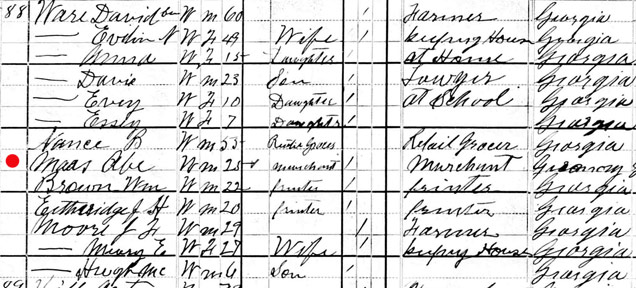 88 Ware David W m 60 1 Farmer Georgia
— W F 49 Wife 1 keeping House Georgia
— Anna W F 15 Daughter 1 at Home Georgia
— Davis W m 23 Son 1 Lawyer Georgia
— Evey W F 10 Daughter 1 at School Georgia
— Essly W F 7 Daughter 1 Georgia
Nance B W m 55 1 Retail Grocer Georgia
Maas Abe W m 25 merchant Merchant
Brown Wm W m 22 printer 1 printer Georgia
Eitheridge J H W m 20 printer printer Georgia
Moore J F W m 29 1 Farmer Georgia
— Mary E W F 27 Wife 1 keeping House Georgia
— Hugh Mc W m 6 Son 1 Georgia